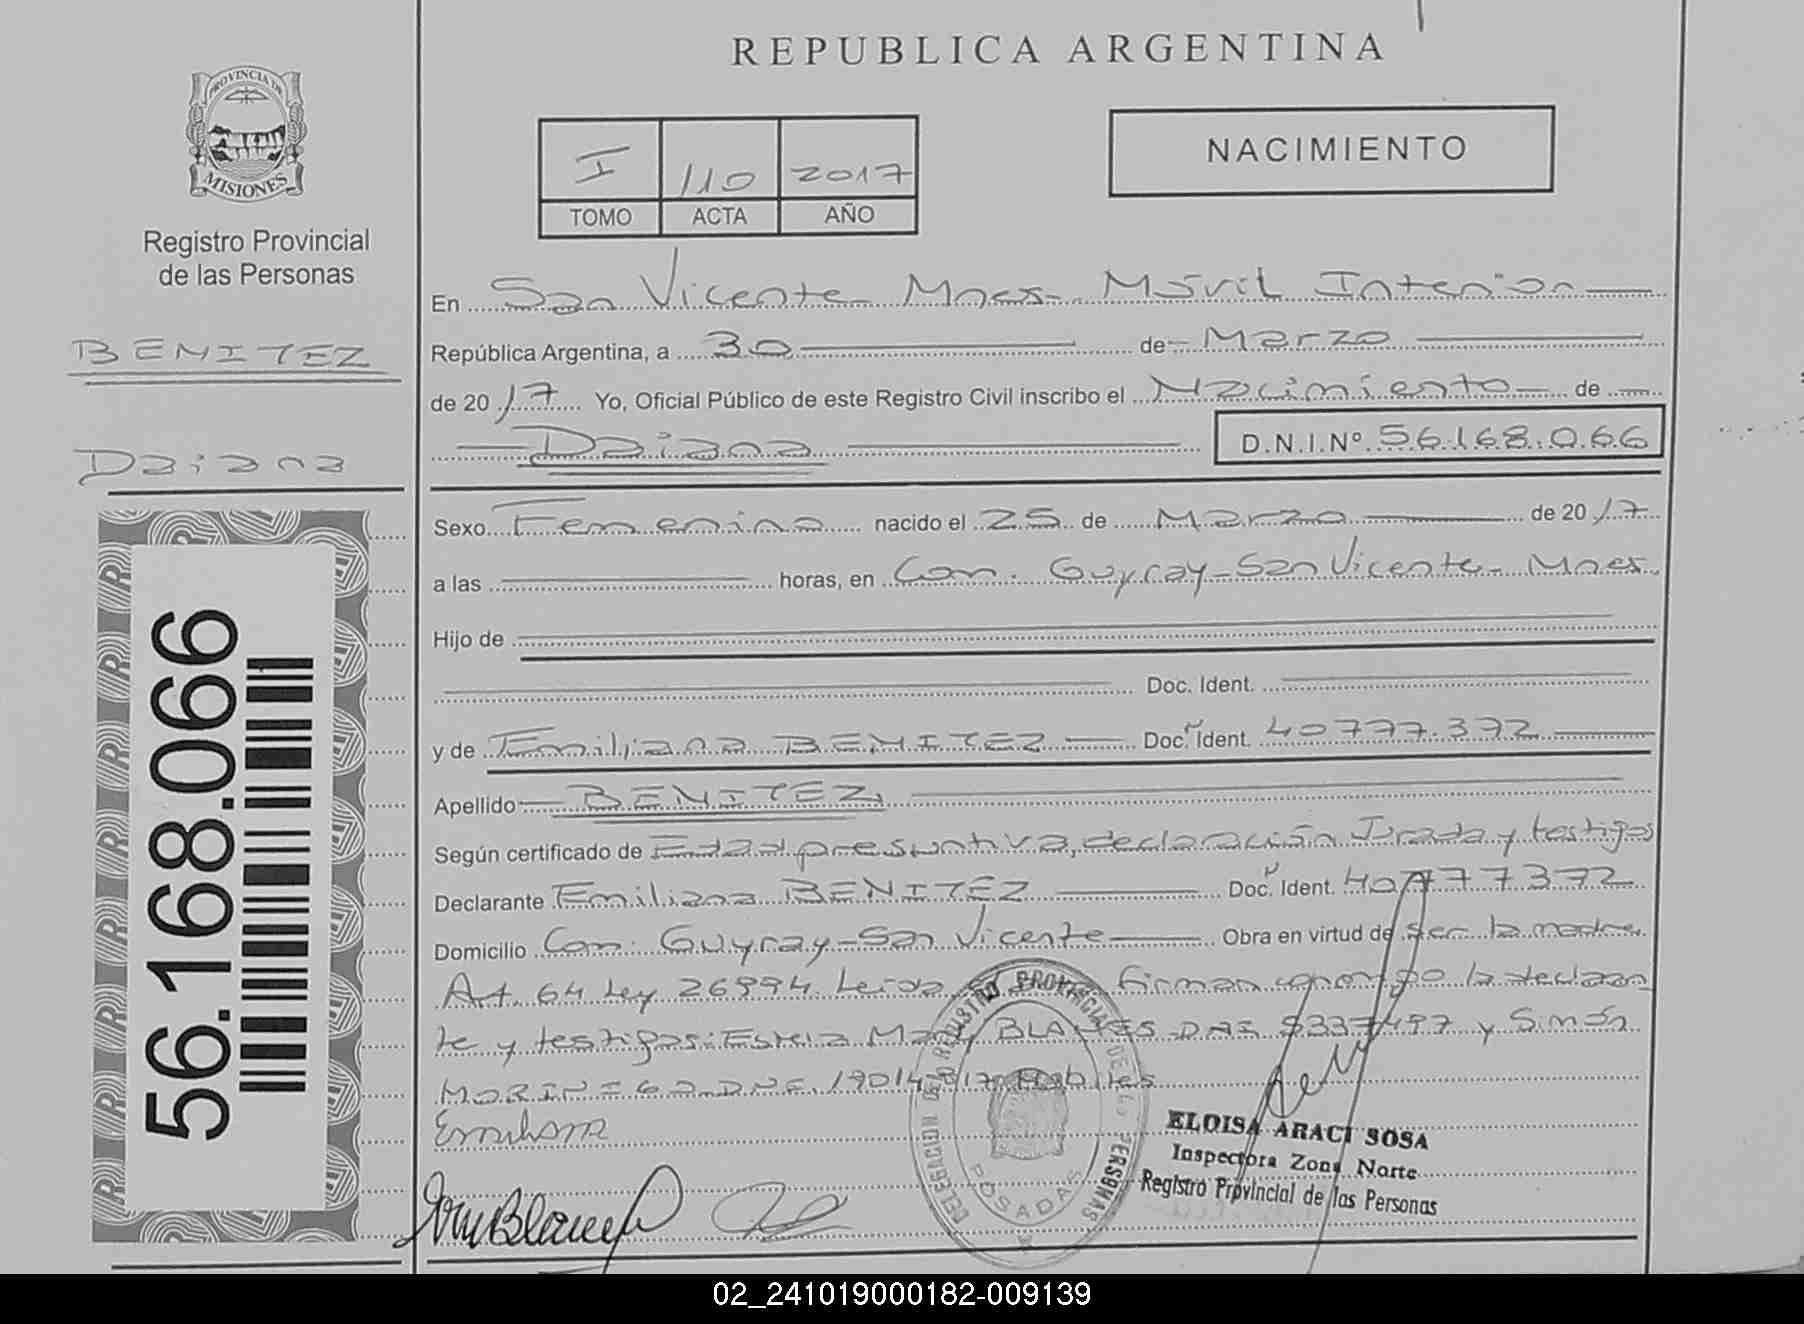 REPUBLICA ARGENTINA
PROVINCIA DE
MISIONES
Registro Provincial
de las Personas
BENITEZ
Daiana
56.168.066
I 110 2017
TOMO ACTA AÑO
NACIMIENTO
En San Vicente Mnes. Móvil Interior
República Argentina, a 30 de Marzo
de 2017 Yo, Oficial Público de este Registro Civil inscribo el Nacimiento de
Daiana D.N.I.Nº 56.168.066
Sexo Femenino nacido el 25 de Marzo de 2017
a las horas, en Com. Guyray-San Vicente- Mnes.
Hijo de
Doc. Ident.
y de Emiliana BENITEZ Doc. Ident. 40777.372
Apellido BENITEZ
Según certificado de Edad presuntiva, declaración Jurada y testigos
Declarante Emiliana BENITEZ Doc. Ident. 40777372
Domicilio Com. Guyray-San Vicente Obra en virtud de ser la madre.
Art. 64 Ley 26994. Leida firman conmigo la declaran
te y testigos: Estela Mary BLANES y Simón
Emiliana
DELEGACION DEL REGISTRO PROVINCIAL DE LAS PERSONAS
POSADAS
ELOISA ARACI SOSA
Inspectora Zona Norte
Registro Provincial de las Personas
02_241019000182-009139